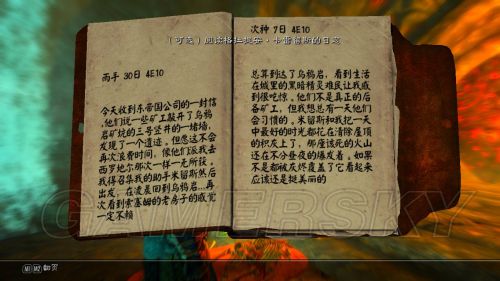 （可选）阅读格拉提安·卡雷留斯的日志
雨手 30日 4E10
今天收到东帝国公司的一封信
,他们说一些矿工敲开了乌鸦
岩矿坑的二号竖井的一堵墙,
发现了一个遗迹。但愿这不会
再次浪费时间，像他们派我去
西罗地尔那次一样一无所获。
我得召集我的助手米留斯然后
出发，在凌晨回到乌鸦岩...再
次看到索塞姆的老房子的感觉
一定不赖
次种 7日 4E10
总算到达了乌鸦岩，看到生活
在城里的黑暗精灵难民让我感
到很吃惊。他们不是真正的后
备矿工，但我想总有一天他们
会习惯的。米留斯和我把一天
中最好的时光都花在清除屋顶
的积灰上了，那座该死的火山
还在不分昼夜的爆发着。如果
不是都被灰烬覆盖了它看起来
应该还是挺美丽的
GAMERSKY
M1 M2 翻页